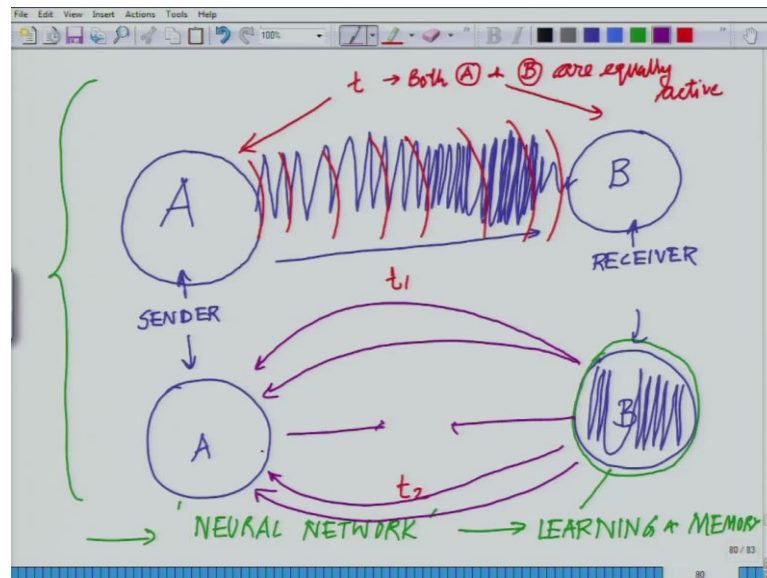 File Edit View Insert Actions Tools Help
100%
B I
t → Both Ⓐ + Ⓑ are equally
active
A
B
RECEIVER
t1
SENDER
A
B
t2
'NEURAL NETWORK' → LEARNING & MEMORY
80 / 83
80